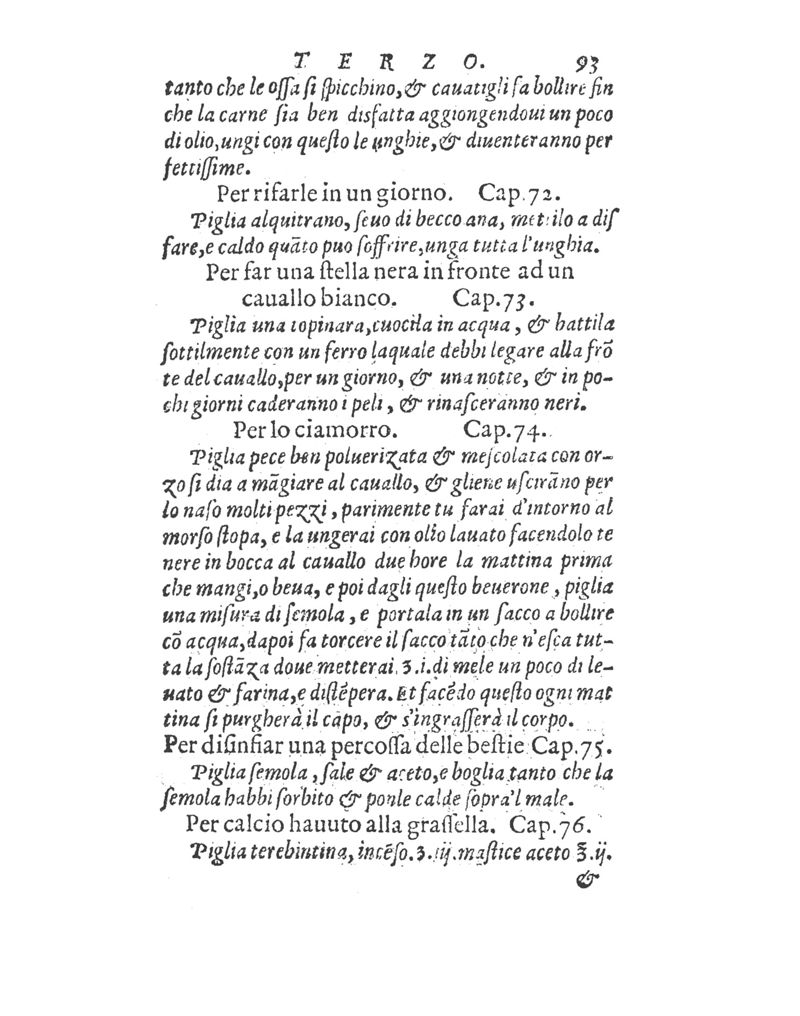 T E R Z O. 93
tanto che le oſſa ſi ſpicchino, & cauatigli fa bollire fin
che la carne ſia ben disfatta aggiongendoui un poco
di olio, ungi con queſto le unghie, & diuenteranno per
fettiſſime.
Per rifarle in un giorno. Cap.72.
Piglia alquitrano, ſeuo di becco ana, mettilo a diſ
fare, e caldo quāto puo ſoffrire, unga tutta l'unghia.
Per far una ſtella nera in fronte ad un
cauallo bianco. Cap.73.
Piglia una topinara, cuocila in acqua, & battila
ſottilmente con un ferro laquale debbi legare alla frō
te del cauallo, per un giorno, & una notte, & in po-
chi giorni caderanno i peli, & rinaſceranno neri.
Per lo ciamorro. Cap.74.
Piglia pece ben poluerizata & meſcolata con or-
zo ſi dia a māgiare al cauallo, & gliene uſcirāno per
lo naſo molti pezzi, parimente tu farai d'intorno al
morſo ſtopa, e la ungerai con olio lauato facendolo te
nere in bocca al cauallo due hore la mattina prima
che mangi, o beua, e poi dagli queſto beuerone, piglia
una miſura di ſemola, e portala in un ſacco a bollire
cō acqua, dapoi fa torcere il ſacco tāto che n'eſca tut-
ta la ſoſtāza doue metterai ʒ.i.di mele un poco di le-
uato & farina, e diſtēpera. Et facēdo queſto ogni mat
tina ſi purgherà il capo, & s'ingraſſerà il corpo.
Per diſinfiar una percoſſa delle beſtie Cap.75.
Piglia ſemola, ſale & aceto, e boglia tanto che la
ſemola habbi ſorbito & ponle calde ſopra'l male.
Per calcio hauuto alla graſſella. Cap.76.
Piglia terebintina, incēſo.ʒ.iij.maſtice aceto ℥.ij.
&